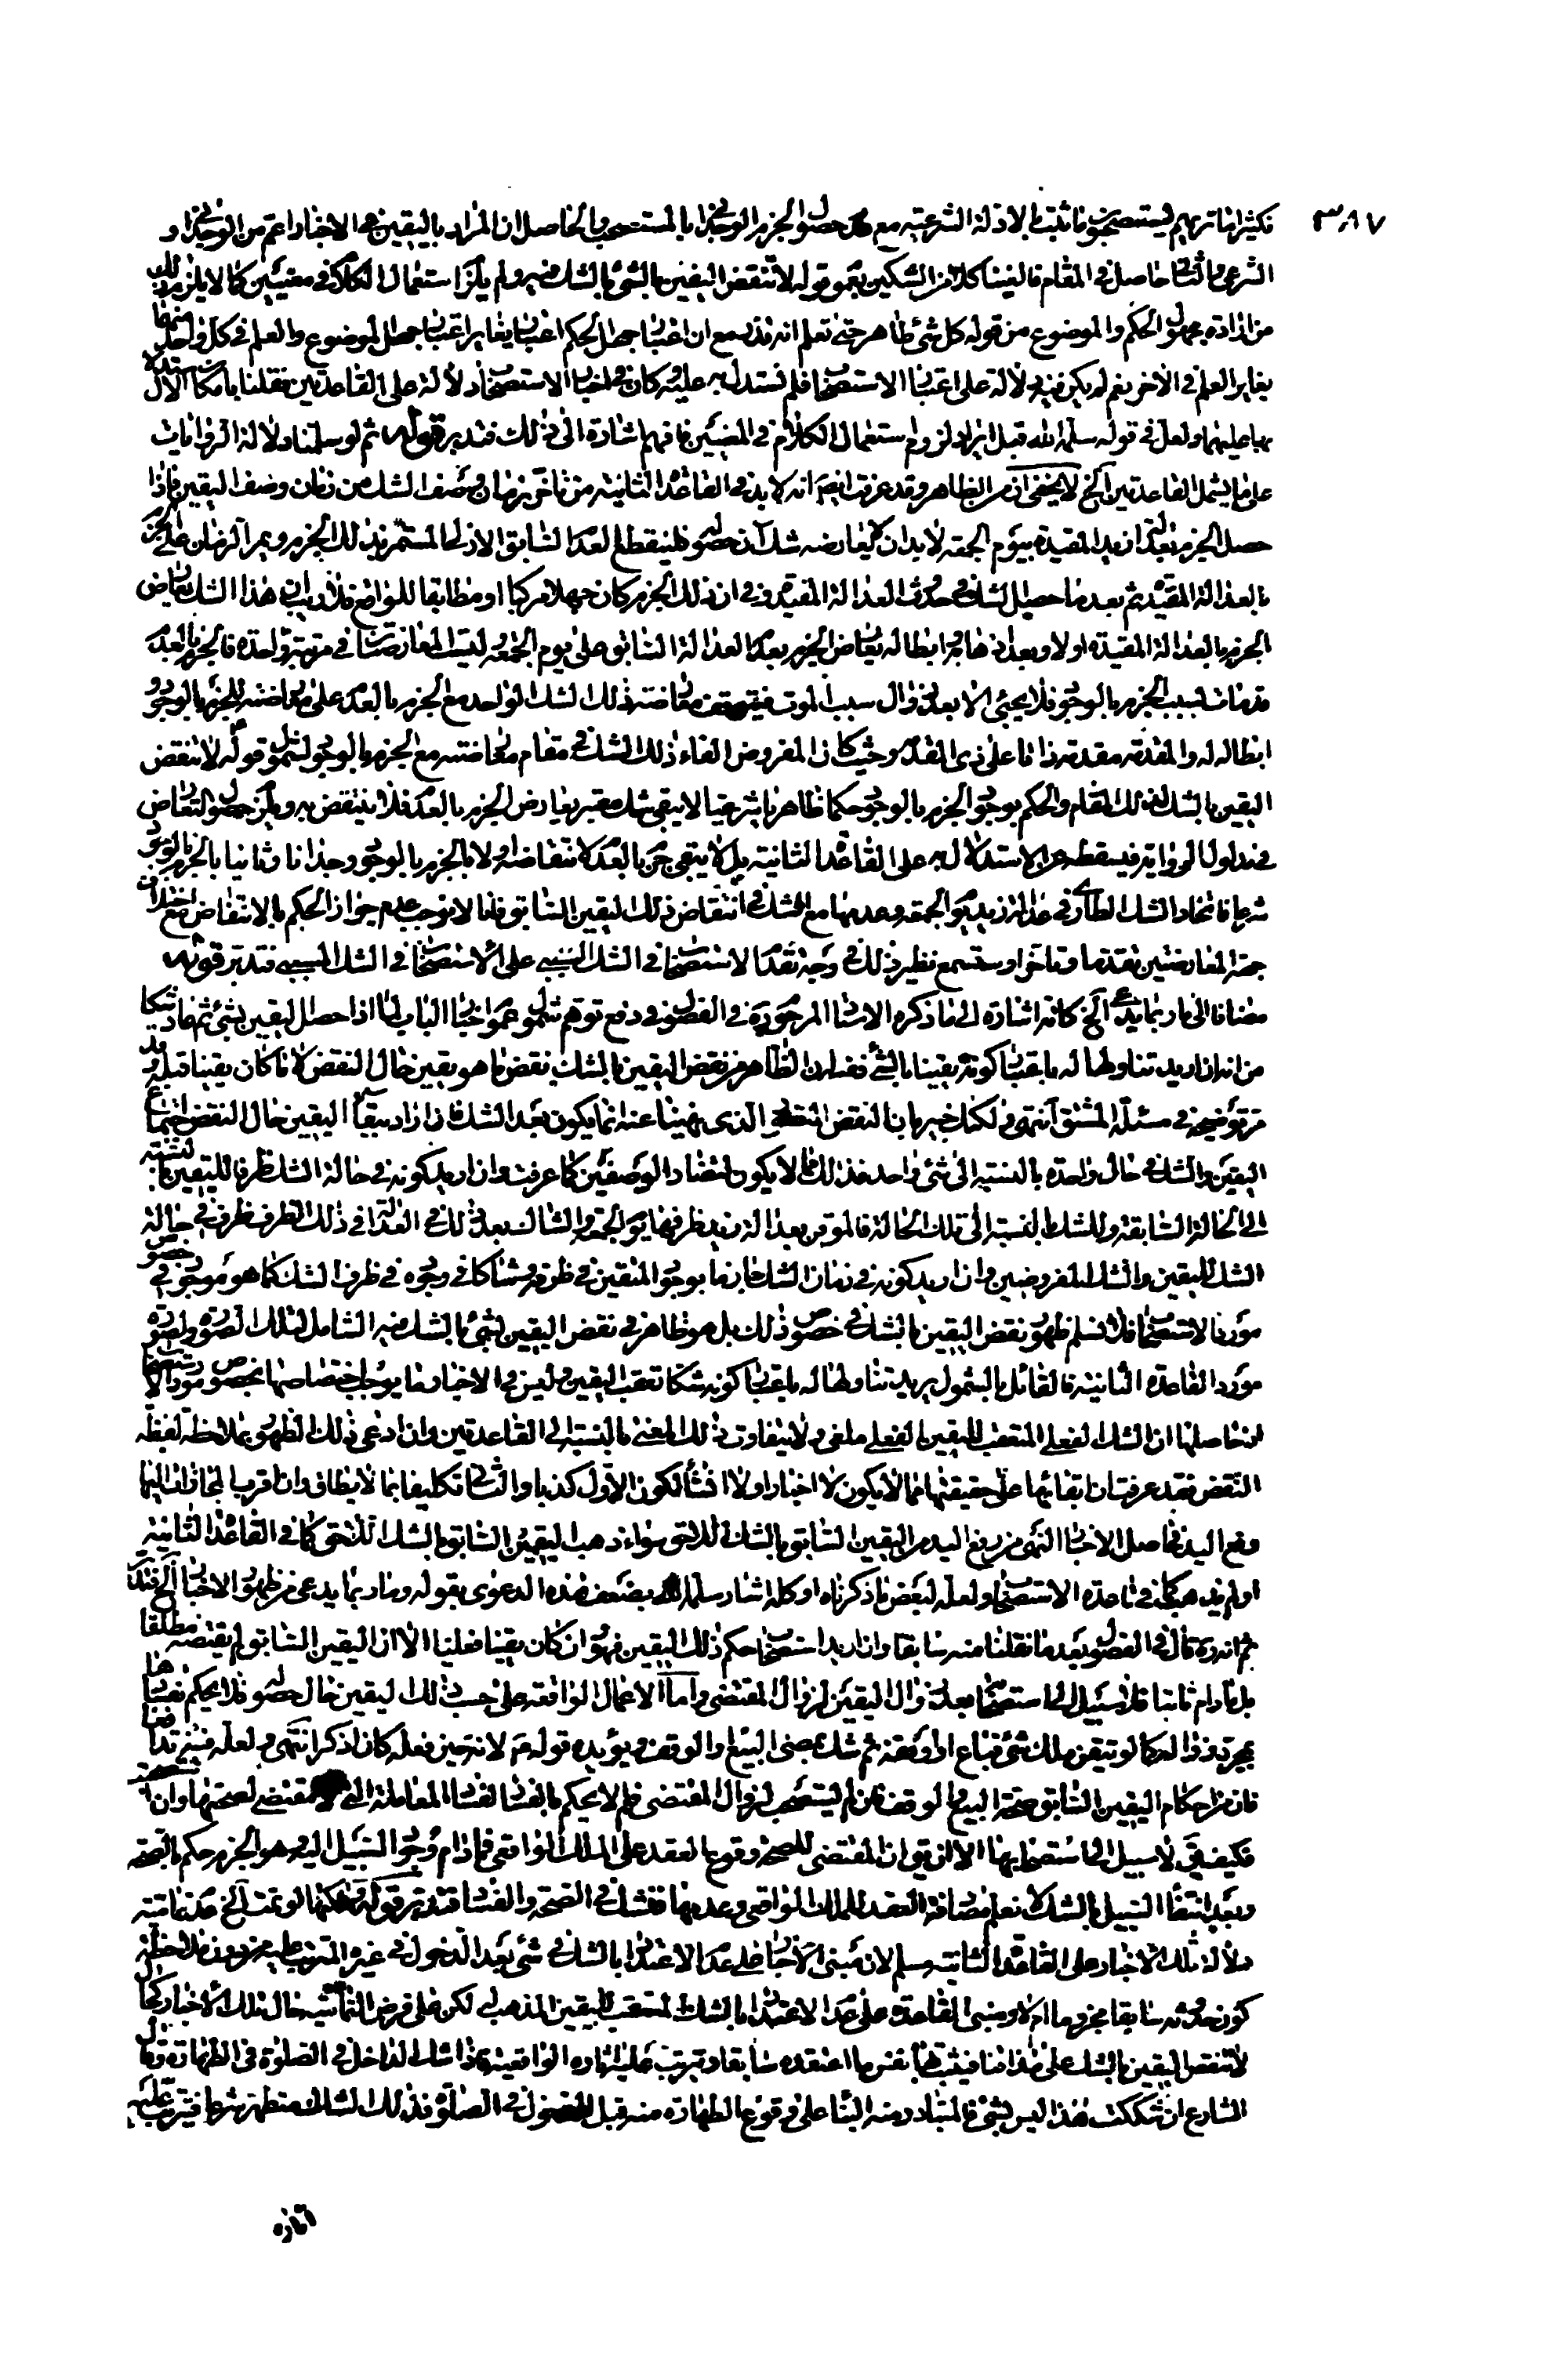 ٣٨٧
فكثيرا ما تريهم يستصحبون ما ثبت بالادلة الشرعية مع عدم حصول الجزم الوجداني بالمستصحب والحاصل ان المراد باليقين في الاخبار اعم من الوجداني و
الشرعي والثاني حاصل في المقام فاليقينان كلاهما من الشكين بعموم قوله لا تنقض اليقين بالشئ بالشك فيه ولم يلزم استعمال الكلام في معنيين كما لا يلزم ذلك
من ارادة مجهول الحكم والموضوع من قوله كل شئ طاهر حتى تعلم انه قذر مع ان اعتبار جهل الحكم اعتبار يغاير اعتبار جهل الموضوع والعلم في كل واحد منهما
يغاير العلم في الآخر نعم لو لم يكن فيه دلالة على اعتبار الاستصحاب فلم نستدل به عليه وكان في اخبار الاستصحاب دلالة على القاعدتين فقلنا بامكان الاستدلال
بها عليهما ولعل في قوله سلمه الله قبل ايراد لزوم استعمال الكلام في المعنيين فافهم اشارة الى ذلك فتدبر قوله ثم لو سلمنا دلالة الروايات
على ما يشمل القاعدتين الخ لا يخفى انه من الظاهر وقد عرفت ايضا انه لا بد في القاعدة الثانية من تاخر زمان وصف الشك من زمان وصف اليقين فاذا
حصل الجزم بعدالة زيد المقيدة بيوم الجمعة لا بد ان لا يعارضه شك آن حصوله فينقطع العدم السابق الازلي المستمر بذلك الجزم ويمر الزمان على الجزم
بالعدالة المقيدة ثم بعد ما حصل الشك في حدوث العدالة المقيدة وفي ان ذلك الجزم كان جهلا مركبا او مطابقا للواقع فلا ريب في ان هذا الشك يعارض
الجزم بالعدالة المقيدة اولا وبعد ذهابه وابطاله يعارض الجزم بعدم العدالة السابق على يوم الجمعة ليست المعارضتان في مرتبة واحدة فالجزم بالعدم
قد مات بسبب الجزم بالوجود فلا يحيى الا بعد زوال سبب الموت فيتوقف معارضة ذلك الشك الواحد مع الجزم بالعدم على معارضته للجزم بالوجود و
ابطاله له والمقدمة مقدمة ذاتا على ذي المقدمة وحيث كان المفروض الغاء ذلك الشك في مقام معارضته مع الجزم بالوجود لشمول قوله لا تنقض
اليقين بالشك لذلك المقام والحكم بوجود الجزم بالوجود حكما ظاهريا شرعيا لا يبقى شك معتبر يعارض الجزم بالعدم فلا ينتقض به ولم يكن حصول التعارض
في مدلول الرواية فيسقط عن الاستدلال به على القاعدة الثانية بل لا يبقى جزم بالعدم لانتقاضه اولا بالجزم بالوجود وجدانا وثانيا بالجزم بالوجود
شرعا فاتحاد الشك الطاري في عدالة زيد يوم الجمعة وعدمها مع الشك في انتقاض ذلك اليقين السابق فانما لا توجب عدم جواز الحكم بالانتقاض مع اختلاف
جهة المعارضتين تقدما وتاخرا وستسمع نظير ذلك في وجه تقدم الاستصحاب في الشك السببي على الاستصحاب في الشك المسببي فتدبر قوله
مضافا الى ما ربما يدعى الخ كانه اشارة الى ما ذكره الاستاد المرحوم في الفصول في دفع توهم شمول عموم اخبار الباب لما اذا حصل اليقين بشئ ثم عاد شكا
من انه ان اريد تناولها له باعتبار كونه يقينا بالشئ ففساده ان الظاهر من نقض اليقين بالشك نقض ما هو يقين حال النقض لا ما كان يقينا قبله وقد
مر توضيحه في مسئلة المشتق انتهى لكنك خبير بان النقض المنهي الذي نهينا عنه انما يكون بعد الشك فان اراد ببقاء اليقين حال النقض اجتماع
اليقين والشك في حال واحدة بالنسبة الى شئ واحد فذلك مما لا يكون لتضاد الوصفين كما عرفت وان اريد كونه في حالة الشك ظرفا لليقين بالنسبة
الى الحالة السابقة وللشك بالنسبة الى تلك الحالة فالموقن بعدالة زيد ظرفها يوم الجمعة والشاك بعد ذلك في العدالة في ذلك الظرف ظرف في حالة
الشك لليقين والشك المفروضين وان اريد كونه في زمان الشك جازما بوجود المتقين في ظرفه وشاكا في وجوده في ظرف الشك كما هو موجود في خصوص
مورد الاستصحاب فلا نسلم ظهور نقض اليقين بالشك في خصوص ذلك بل هو ظاهر في نقض اليقين بشئ بالشك فيه الشامل لتلك الصورة ولصورة
مورد القاعدة الثانية فالقائل بالشمول يريد تناولها له باعتبار كونه شكا تعقب اليقين وليس في الاخبار ما يوجب اختصاصها بخصوص مورد الاستصحاب
اذ حاصلها ان الشك الفعلي المتعقب لليقين بالفعلي ملغى ولا يتفاوت ذلك المعنى بالنسبة الى القاعدتين وان ادعى ذلك الظهور بملاحظة لفظه
النقض فقد عرفت ان ابقائها على حقيقتها مما لا يكون لا اخبارا ولا انشاء لكون الاول كذبا والثاني تكليفا بما لا يطاق وان اقرب المجازات اليها
رفع اليد فحاصل الاخبار النهي من رفع اليد من اليقين السابق بالشك اللاحق سواء ذهب اليقين السابق بالشك اللاحق كما في القاعدة الثانية
او لم يذهب كما في قاعدة الاستصحاب ولعله لبعض ما ذكرناه او كله اشار سلمه الله بضعف هذه الدعوى بقوله وما ربما يدعى من ظهور الاخبار الخ فتدبر
ثم انه ره قال في الفصول بعد ما نقلنا منه سابقا وان اريد استصحاب حكم ذلك اليقين فهو وان كان يقينا فعليا الا ان اليقين السابق لم يقتضه مطلقا
بل ما دام ثابتا فلا سبيل الى استصحابه بعد زوال اليقين لزوال المقتضي واما الاعمال الواقعة على حسب ذلك اليقين حال حصوله فلا يحكم بفسادها
بمجرد زواله كما لو تيقن ملك شئ فباع او وقفه ثم شك بمضي البيع والوقف ويؤيده قوله ع لانه حين فعله كان اذكر انتهى ولعله فيه تدافع
فان من احكام اليقين السابق صحة البيع والوقف فان لم يستصحب لزوال المقتضي فلم لا يحكم بالفساد لفساد المعاملة المقتضي لصحتها وان استصحبت
فكيف يق لا سبيل الى استصحابها الا ان يق ان المقتضي للصحة وقوع العقد على الملك الواقعي فما دام وجود السبيل اليه وهو الجزم حكم بالصحة
وبعد انتفاء السبيل بالشك لا نعلم مصادفة العقد للملك الواقعي وعدمها فنشك في الصحة والفساد فتدبر قوله لكنها لو تمت الخ عدم تمامية
دلالة تلك الاخبار على القاعدة الثانية مسلم لان مبنى الاخبار على عدم الاعتداد بالشك في شئ بعد الدخول في غيره المترتب عليه من دون ملاحظة
كون حدوثه سابقا مجزوما ام لا ومبنى القاعدة على عدم الاعتداد بالشك المتعقب لليقين الذاهب لكن على فرض التمامية حال تلك الاخبار كحال
لا تنقض اليقين بالشك على مذاقنا فيثبت بها نفس ما اعتقده سابقا ويترتب عليه اثاره الواقعية فاذا شك الداخل في الصلوة في الطهارة وقال
الشارع ان شككت هذا ليس بشئ فالمتبادر منه البناء على وقوع الطهارة منه قبل الدخول في الصلوة فذلك الشاك متطهر شرعا فيترتب عليه
آثاره